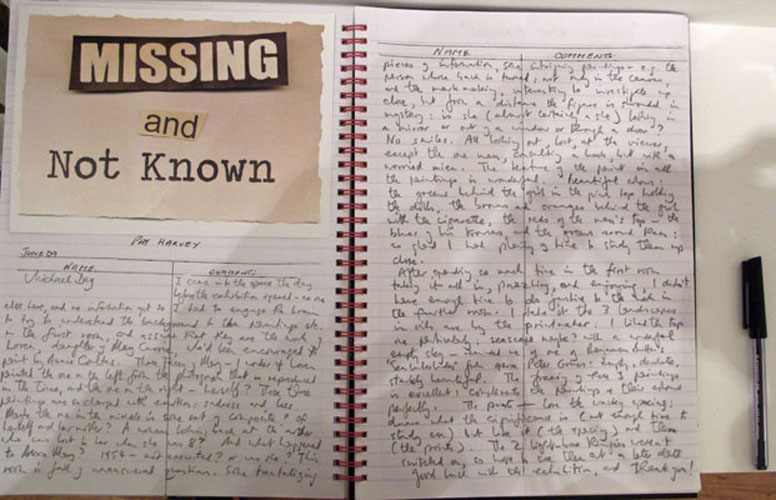 MISSING
and
Not Known
PAT HARVEY
NAME
COMMENTS
I came into the space the day
before the exhibition opened – so no
else here, and no information yet so I had to engage the brain
to try to understand the background to the paintings etc.
in the first room, and
Loren, daughter of May
print by Annie
painted the one on the left from the photograph that is reproduced
in the Times, and the one on the right is herself? These
paintings are charged with emotion: sadness and loss
Maybe the one in the middle is some sort of composite of
herself and her mother? A woman looking back at the mother
who was lost to her when she was 8? And what happened
to May? 1954 – not executed? or was she? This
room is full of unanswered questions. Some tantalizing
NAME
COMMENTS
pieces of information, some intriguing paintings – e.g. the
person whose back is turned; not only is the canvas
and the mark-making interesting to investigate up
close, but from a distance the figure is shrouded in
mystery: is she (almost certainly a she) looking in
a mirror or out of a window or through a door?
No smiles. All looking out, lost, at the viewer,
except the one man, consulting a book, but with a
worried mien. The texture of the paint in all
the paintings is wonderful. Beautiful colours:
the greens behind the girl in the pink top holding
the dolly, the browns and oranges behind the girl
with the cigarette, the reds of the man's top – the
blues of his trousers, and the greens around them:
so glad I had plenty of time to study them up
close.
After spending so much time in the first room
taking it all in, puzzling, and enjoying, I didn't
have enough time to do justice to the work in
the further room. I take it the 3 landscapes
in oils are by the printmaker: I liked the top
one particularly: seascape maybe? with a wonderful
empty sky – reminded me of one of Benjamin Britten's
"Sea Interludes" from opera Peter Grimes: empty, desolate,
starkly beautiful. The grouping of these 3 paintings
is excellent: complements the paintings & their colours
perfectly. The prints – love the quirky spacing:
dunno what the significance is (not enough time to
study em) but love it (the spacing) and them
(the prints). The 2 light-box images weren't
switched on, so hope to see them at a later date
Good luck with the exhibition, and thank you!